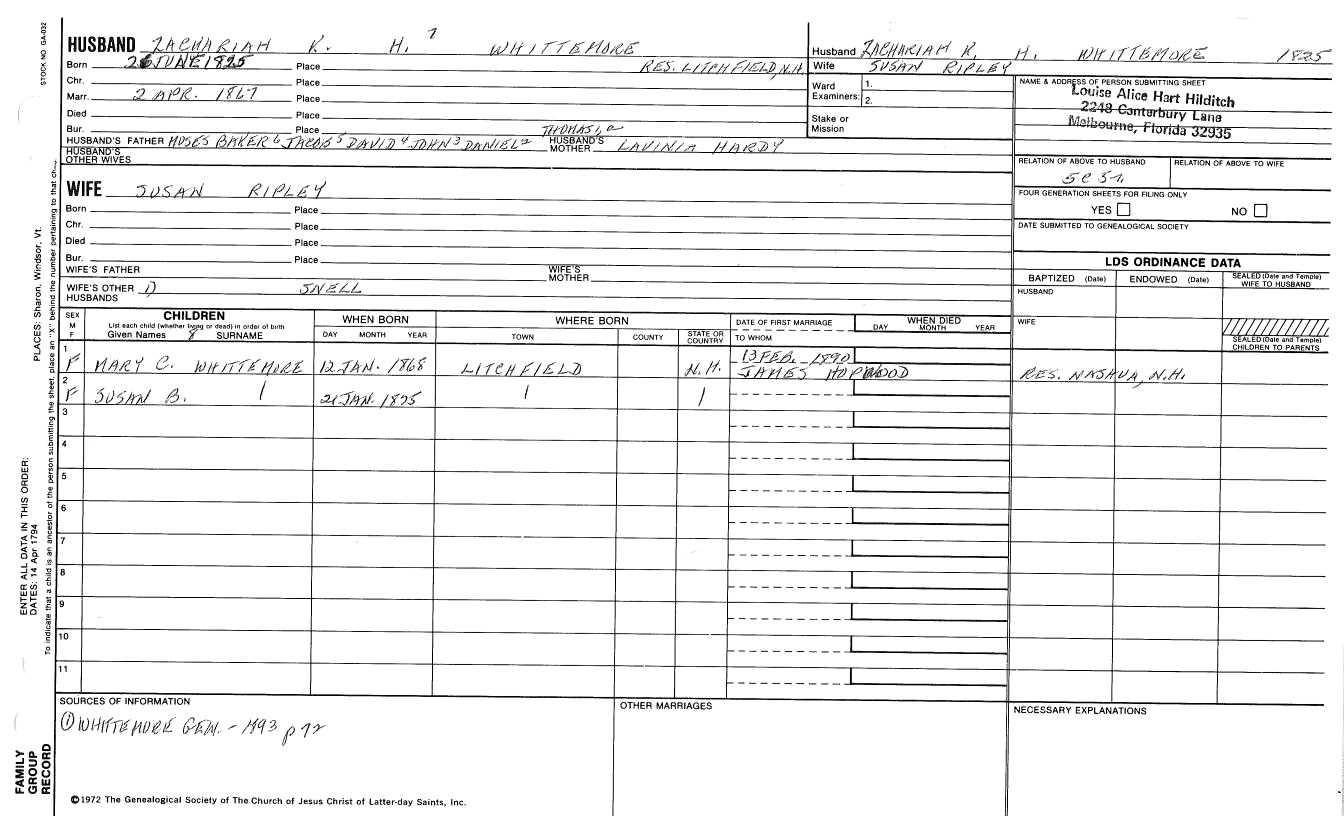 STOCK NO. GA-032
HUSBAND ZACHARIAH K. H. 7 WHITTEMORE
Born 26 JUNE 1825 Place RES. LITCHFIELD, N.H.
Chr. Place
Marr. 2 APR. 1867 Place
Died Place
Bur. Place
HUSBAND'S FATHER MOSES BAKER 6 JACOB 5 DAVID 4 JOHN 3 DANIEL 2 THOMAS 1, a HUSBAND'S MOTHER LAVINIA HARDY
HUSBAND'S OTHER WIVES
Husband ZACHARIAH R. H. WHITTEMORE 1825
Wife SUSAN RIPLEY
Ward Examiners: 1.
2.
Stake or Mission
NAME & ADDRESS OF PERSON SUBMITTING SHEET
Louise Alice Hart Hilditch
2248 Canterbury Lane
Melbourne, Florida 32935
RELATION OF ABOVE TO HUSBAND RELATION OF ABOVE TO WIFE
5C 3r.
FOUR GENERATION SHEETS FOR FILING ONLY
YES NO
DATE SUBMITTED TO GENEALOGICAL SOCIETY
WIFE SUSAN RIPLEY
Born Place
Chr. Place
Died Place
Bur. Place
WIFE'S FATHER WIFE'S MOTHER
WIFE'S OTHER HUSBANDS 1) SNELL
LDS ORDINANCE DATA
BAPTIZED (Date) ENDOWED (Date) SEALED (Date and Temple) WIFE TO HUSBAND
HUSBAND
WIFE
SEALED (Date and Temple) CHILDREN TO PARENTS
SEX M F
CHILDREN
List each child (whether living or dead) in order of birth
Given Names 8 SURNAME
WHEN BORN
DAY MONTH YEAR
WHERE BORN
TOWN COUNTY STATE OR COUNTRY
DATE OF FIRST MARRIAGE
TO WHOM
WHEN DIED
DAY MONTH YEAR
1 F MARY C. WHITTEMORE 12 JAN. 1868 LITCHFIELD N.H. 13 FEB. 1890
JAMES HOPWOOD RES. NASHUA, N.H.
2 F SUSAN B. 21 JAN. 1875
3
4
5
6
7
8
9
10
11
SOURCES OF INFORMATION
① WHITTEMORE GEN. - 1893 p 72
OTHER MARRIAGES
NECESSARY EXPLANATIONS
©1972 The Genealogical Society of The Church of Jesus Christ of Latter-day Saints, Inc.
FAMILY GROUP RECORD
ENTER ALL DATA IN THIS ORDER:
DATES: 14 Apr 1794
PLACES: Sharon, Windsor, Vt.
To indicate that a child is an ancestor of the person submitting the sheet, place an "X" behind the number pertaining to that